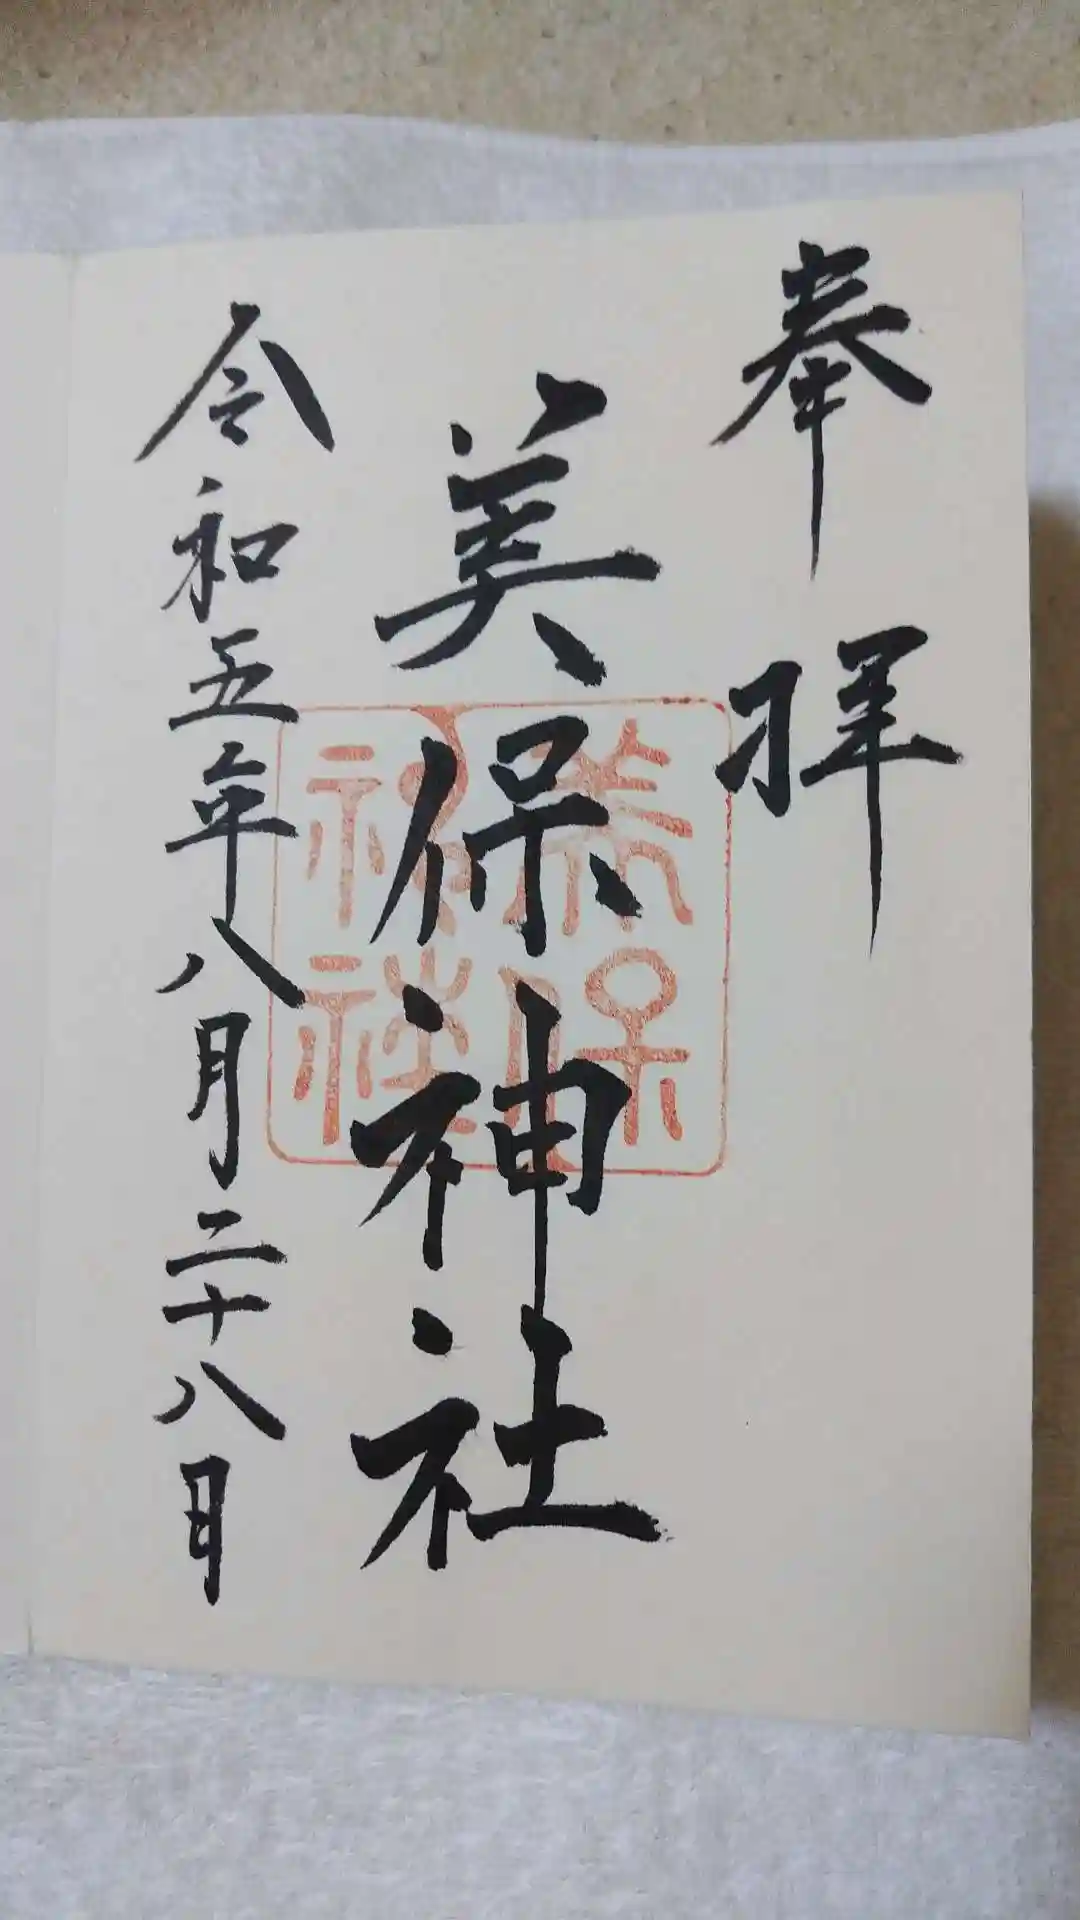 奉拝
美保神社
美保
神社
令和五年八月二十八日